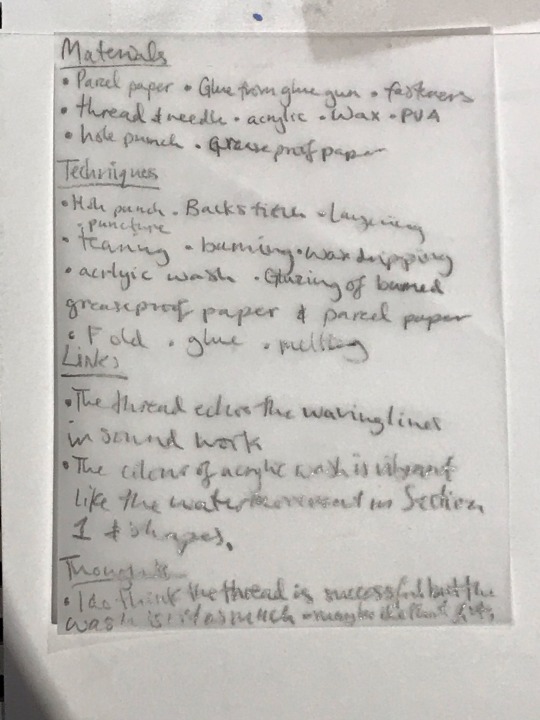 Materials
• Parcel paper • Glue from glue gun • fasteners
• thread & needle • acrylic • Wax • PVA
• hole punch • Greaseproof paper
Techniques
• Hole punch • Backstitch • Layering
• puncture
• tearing • burning • wax dripping
• acrlyic wash • Glazing of burned
greaseproof paper & parcel paper
• Fold • glue • melting
Links
• The thread echos the waving lines
in sound work
• The colour of acrylic wash is vibrant
like the water movement in Section
1 & shapes.
Thoughts
• I do think the thread is successful but the
wash isn't as much - maybe it